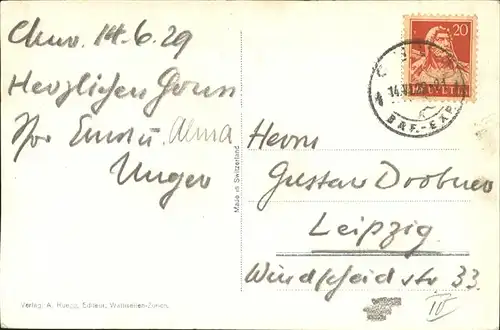 Chur 14.6.29
Herzlichen Gruss
Ihr Ernst u. Alma
Unger
20
HELVETIA
BRF.-EXP.
Made in Switzerland
Herrn
Gustav Drobner
Leipzig
Windscheid str 33.
IV
Verlag: A. Ruegg, Editeur, Wallisellen-Zürich.